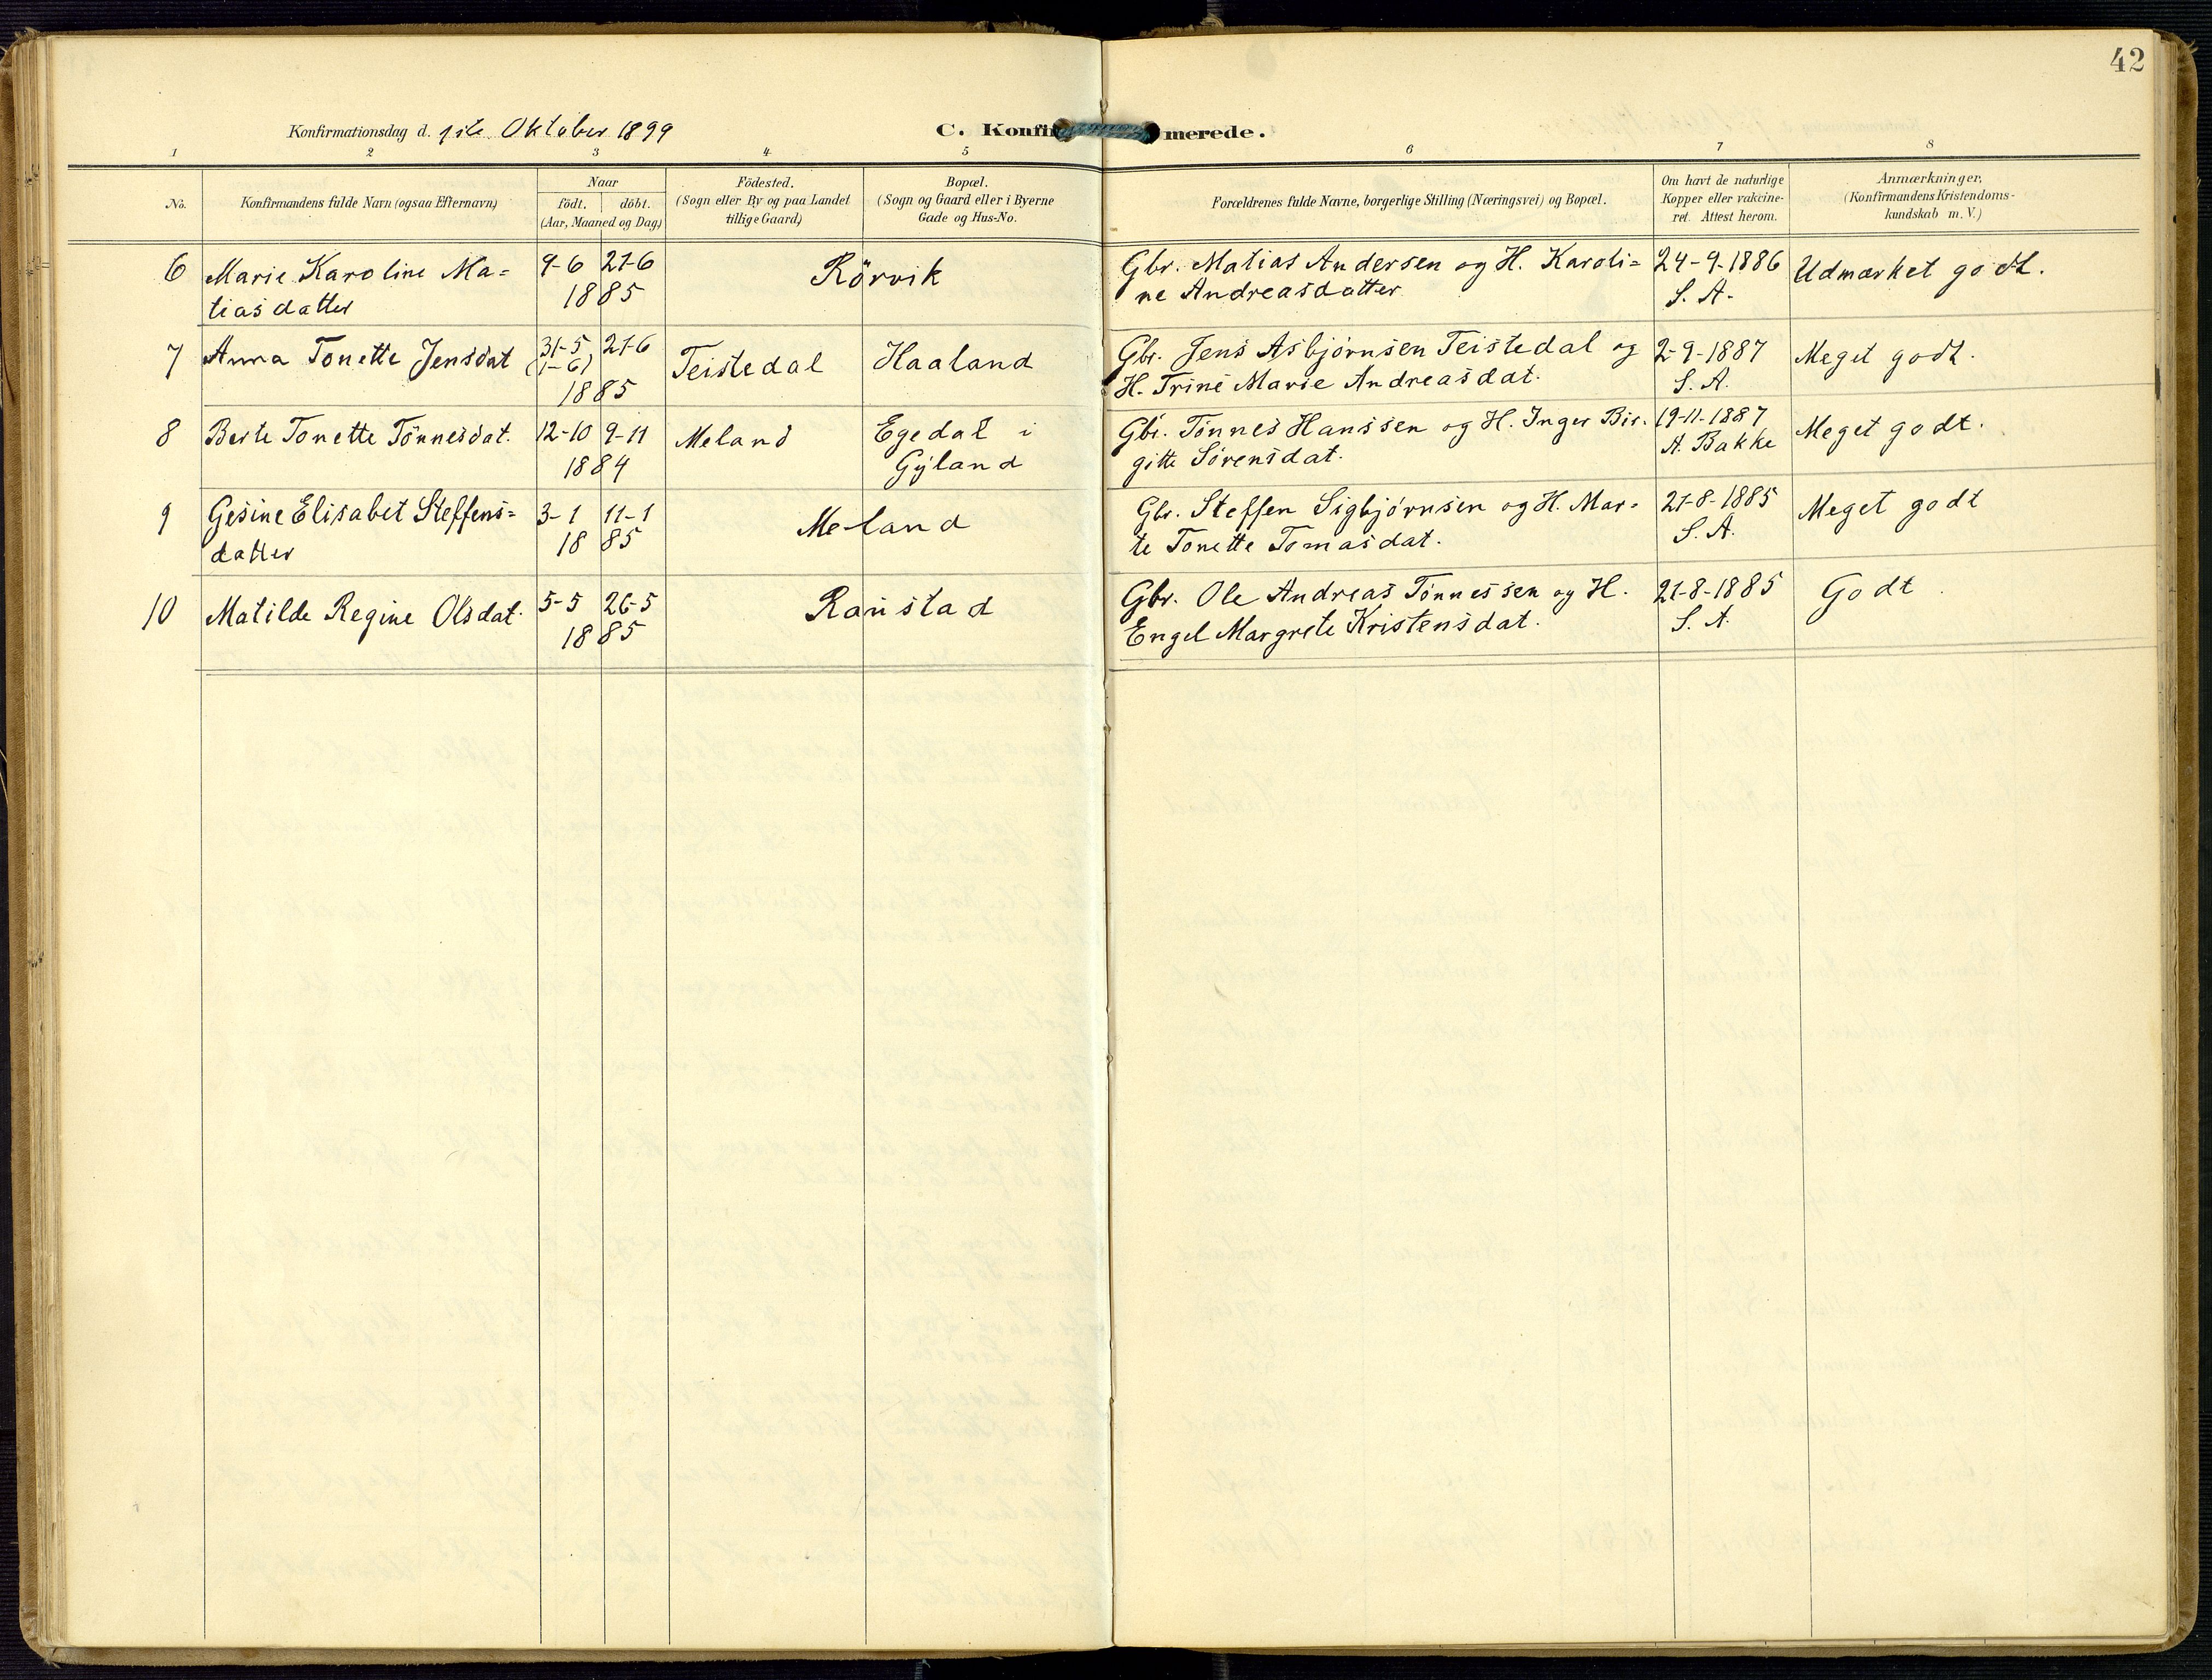 42
Konfirmationsdag d. 1ste Oktober 1899
C. Konfir merede.
1 2 3 4 5 6 7 8
No. Konfirmandens fulde Navn (ogsaa Efternavn) Naar født. døbt. (Aar, Maaned og Dag) Fødested. (Sogn eller By og paa Landet tillige Gaard) Bopæl. (Sogn og Gaard eller i Byerne Gade og Hus-No. Forældrenes fulde Navne, borgerlige Stilling (Næringsvei) og Bopæl. Om havt de naturlige Kopper eller vakcineret. Attest herom. Anmærkninger, (Konfirmandens Kristendomskundskab m. V.)
6 Marie Karoline Ma= 9-6 21-6 Rörvik Gbr. Matias Andersen og H. Karoli= 24-9-1886 Udmærket godt.
tiasdatter 1885 ne Andreasdatter S. A.
7 Anna Tonette Jensdat 31-5 21-6 Teistedal Haaland Gbr. Jens Asbjørnsen Teistedal og 2-9-1887 Meget godt.
(1-6) 1885 H. Trine Marie Andreasdat. S. A.
8 Berte Tonette Tönnesdat. 12-10 9-11 Meland Egedal i Gbr. Tönnes Hanssen og H. Inger Bir. 19-11-1887 Meget godt.
1884 Gyland gitte Sörensdat. A. Bakke
9 Gesine Elisabet Steffens= 3-1 11-1 Meland Gbr. Steffen Sigbjørnsen og H. Mar= 21-8-1885 Meget godt
datter 1885 te Tonette Tomasdat. S. A.
10 Matilde Regine Olsdat. 5-5 26-5 Raustad Gbr. Ole Andreas Tönnessen og H. 21-8-1885 Godt
1885 Engel Margrete Kristensdat. S. A.